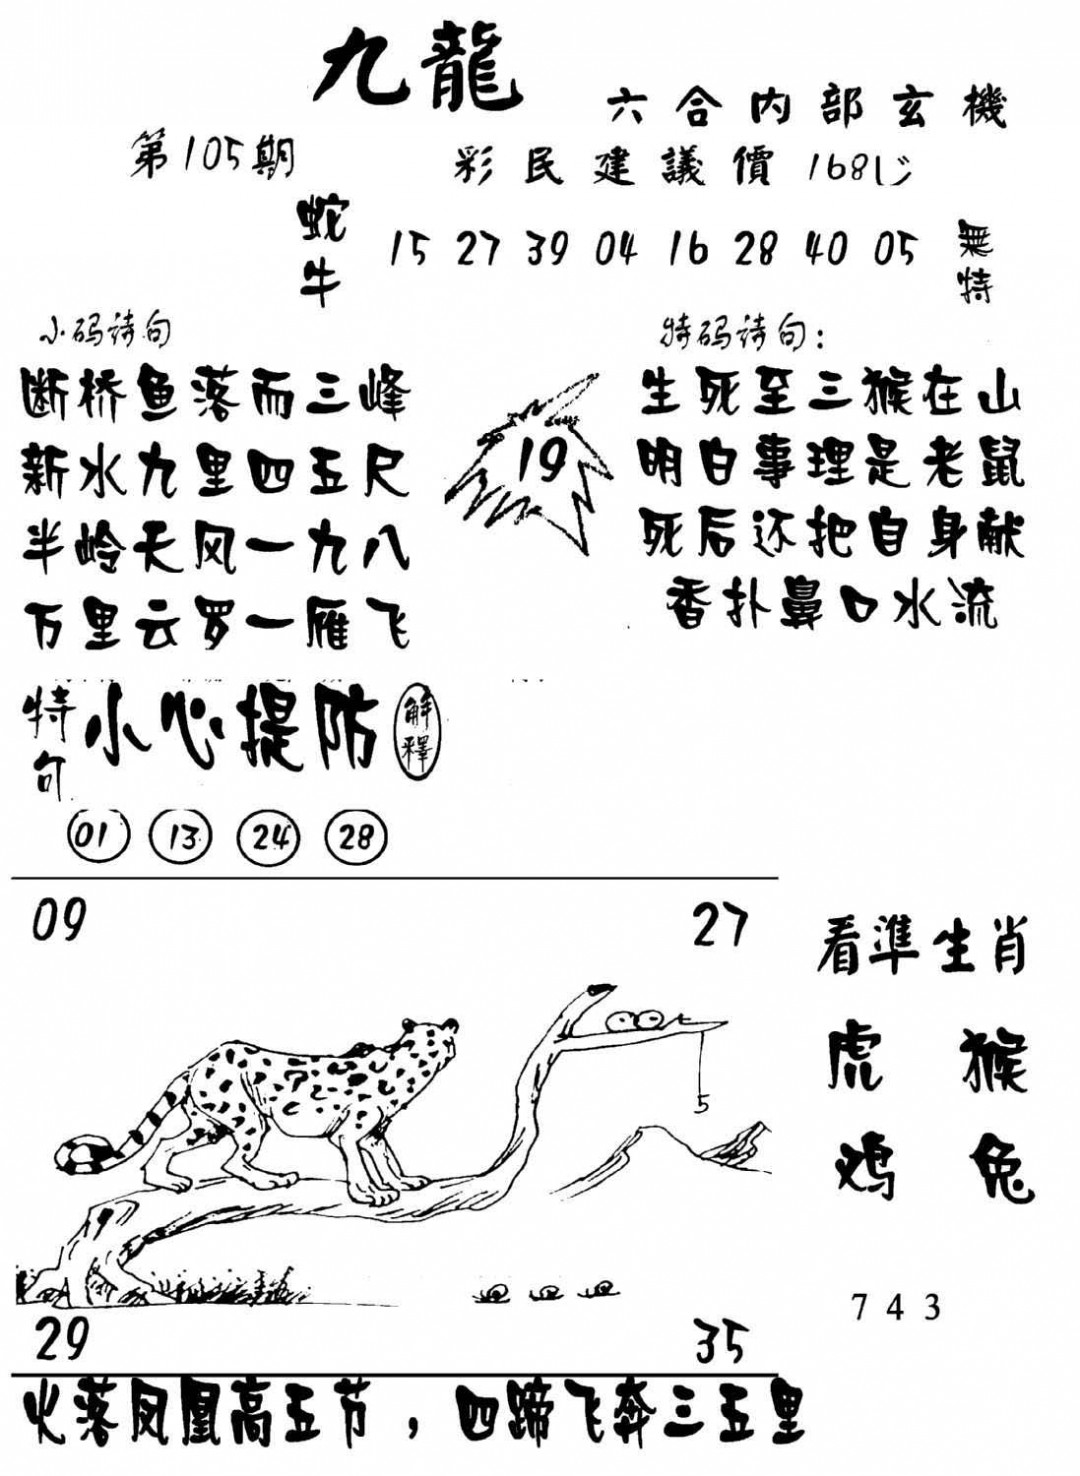 九龍
六合内部玄機
第105期
彩民建議價 168
蛇牛
15 27 39 04 16 28 40 05
無特
小码诗句
断桥鱼落而三峰
新水九里四五尺
半岭天风一九八
万里云罗一雁飞
19
特码诗句:
生死至三猴在山
明白事理是老鼠
死后还把自身献
香扑鼻口水流
特句 小心提防 解釋
01 13 24 28
09 27
看準生肖
虎 猴
鸡 兔
5
743
29 35
火落凤凰高五节，四蹄飞奔三五里